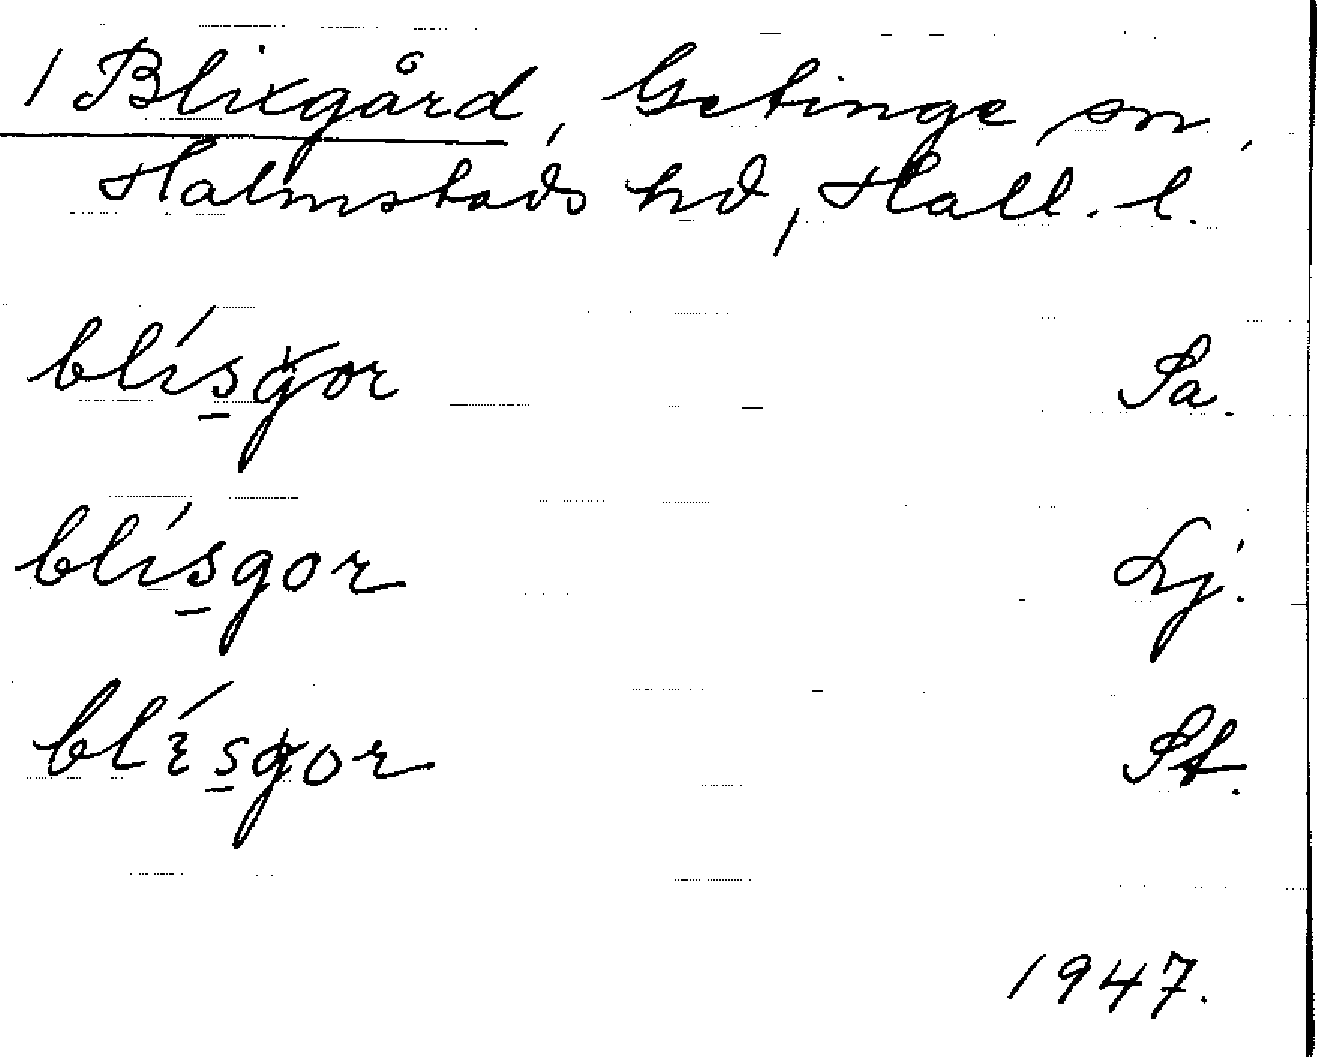 1 Blixgård, Getinge sn,
Halmstads hd, Hall. l.
blísgor Sa.
blísgor Lj.
blísgor St.
1947.